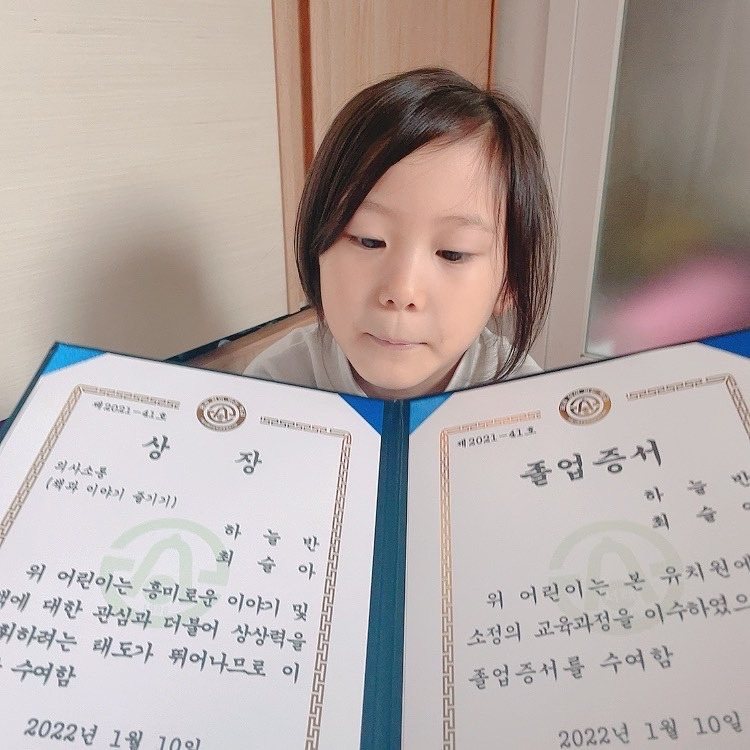 제2021-41호
상 장
의사소통
(책과 이야기 즐기기)
하 늘 반
최 슬 아
위 어린이는 흥미로운 이야기 및
책에 대한 관심과 더불어 상상력을
발휘하려는 태도가 뛰어나므로 이
수여함
2022년 1월 10일
제2021-41호
졸업증서
하 늘 반
최 슬
위 어린이는 본 유치원에
소정의 교육과정을 이수하였으
졸업증서를 수여함
2022년 1월 10일